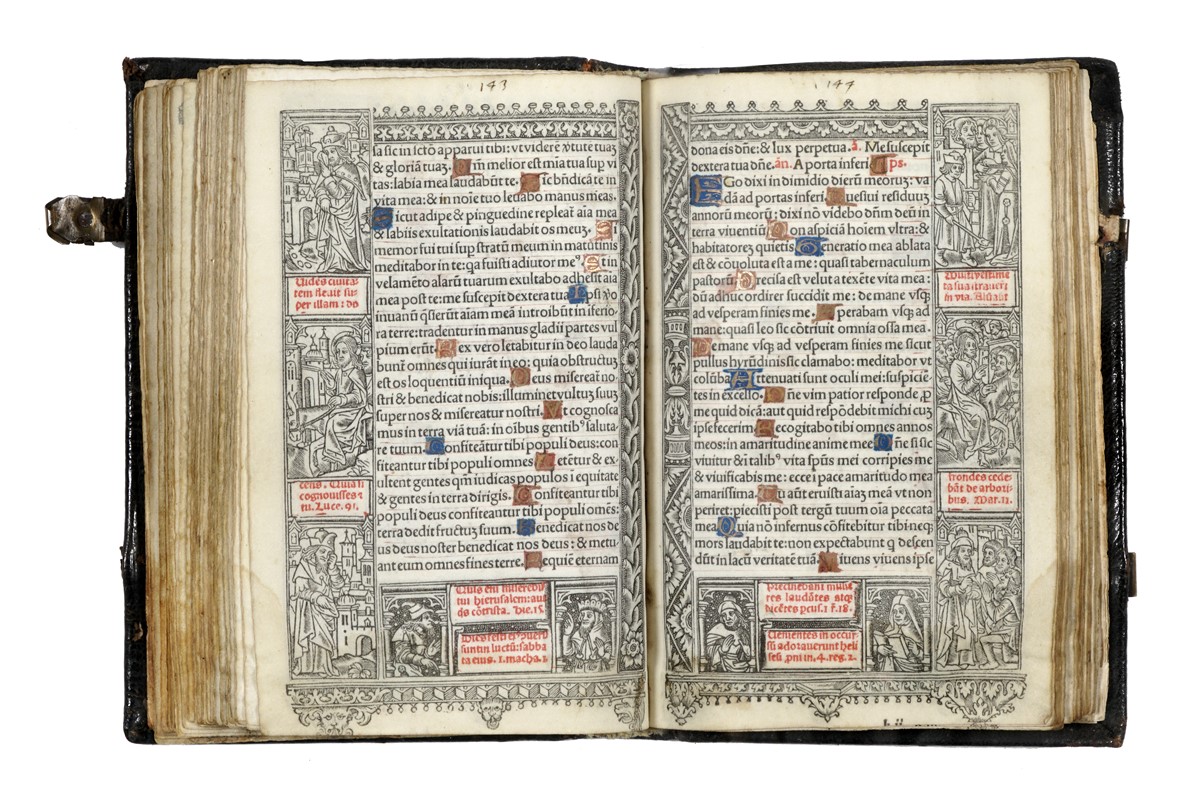 143
la sic in scto apparui tibi: vt viderē v̓tute tuaȝ
& gloriā tuaȝ. Qm̄ melior est mia tua sup vi
tas: labia mea laudabūt te. Sic bñdicā te in
vita mea: & in noīe tuo leuabo manus meas.
Sicut adipe & pinguedine repleat aīa mea
& labiis exultationis laudabit os meuȝ. Si
memor fui tui sup stratū meum in matutinis
meditabor in te: qa fuisti adiutor me⁹. Et in
velamēto alarū tuarum exultabo adhesit aīa
mea post te: me suscepit dextera tua. Ipsi v̓o
inuanū q̄sierūt aīam meā introibūt in inferio
ra terre: tradentur in manus gladii partes vul
pium erūt. Rex vero letabitur in deo lauda
bunt̄ omnes qui iurāt in eo: quia obstructuȝ
est os loquentiū iniqua. Deus misereat̄ no-
stri & benedicat nobis: illuminet vultuȝ suuȝ
super nos & misereatur nostri. Vt cognosca
mus in terra viā tuā: in oībus gentib⁹ saluta-
re tuum. Confiteātur tibi populi deus: con-
fiteantur tibi populi omnes. Letētur & ex-
ultent gentes qm̄ iudicas populos i equitate
& gentes in terra dirigis. Confiteantur tibi
populi deus confiteantur tibi populi oмēs:
terra dedit fructuȝ suum. Benedicat nos de
us deus noster benedicat nos deus: & metu-
ant eum omnes fines terre. Requiē eternam
Uidēs ciuita-
tem fleuit su-
per illam: do
cens. Quia si
cognouisses &
tu. Luce. 91.
Quis eni miserebi-
tur hierusalem: aut
ds cōtrista. Hie. 15.
Dies festi ei⁹ uersi
sunt in luctū: sabba
ta eius. 1. macha. 1
144
dona eis dñe: & lux perpetua. ā. Me suscepit
dextera tua dñe. añ. A porta inferi. ps.
EGo dixi in dimidio dierū meoruȝ: va
dā ad portas inferi. Quesiui residuuȝ
annorū meorū: dixi nō videbo dñm deū in
terra viuentiū. Non aspiciā hoīem vltra: &
habitatoreȝ quietis. Generatio mea ablata
est & cōuoluta est a me: quasi tabernaculum
pastorū. Precisa est velut a texēte vita mea:
dū adhuc ordirer succidit me: de mane vsqȝ
ad vesperam finies me. Sperabam vsqȝ ad
mane: quasi leo sic cōtriuit omnia ossa mea.
De mane vsqȝ ad vesperam finies me sicut
pullus hyrūdinis sic clamabo: meditabor vt
colūba. Attenuati sunt oculi mei: suspiciē
tes in excelso. Dñe vim patior responde p̱
me quid dicā: aut quid respōdebit michi cuȝ
ipse fecerim. Recogitabo tibi omnes annos
meos: in amaritudine anime mee. Dñe si sic
viuitur & ī talib⁹ vita spūs mei corripies me
& viuificabis me: ecce i pace amaritudo mea
amarissima. Tu aūt eruisti aīaȝ meā vt non
periret: proiecisti post tergū tuum oīa peccata
mea. Quia nō infernus cōfitebitur tibi: neqȝ
mors laudabit te: non expectabunt q descen
dūt in lacū veritatē tuā. Viuens viuens ipse
frondes cede-
bāt de arbori-
bus. Mar. 11.
Precinebant muli-
res laudātes atqȝ
dicētes pcus. 1 r̄. 18.
Clementes in occur-
sū adorauerunt heli
seū pni in. 4. reg. 2.